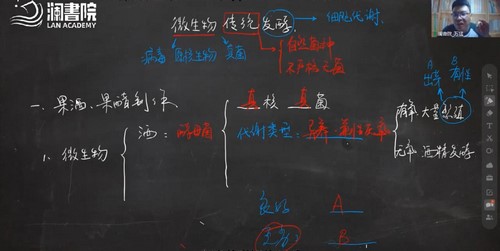 澜書院
LAN ACADEMY
微生物 传统 发酵 → 细胞代谢
病毒 原核生物 真菌
自然菌种
不严格无菌
A B
出芽 有性
一、果酒、果醋制作
1. 微生物
酒：酵母菌
真核 真菌
代谢类型：异养 兼性厌氧
有氧 大量繁殖
无氧 酒精发酵
良好 A
恶劣 B